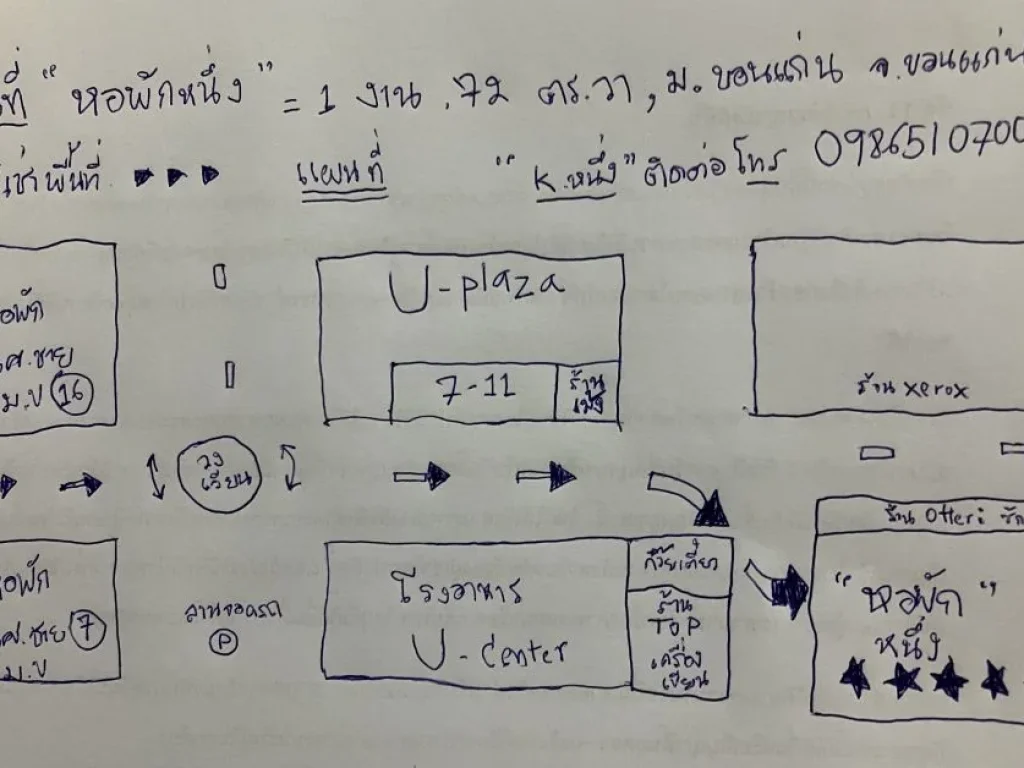 ที่ “หอพักหนึ่ง” = 1 งาน .72 ตร.วา, ม.ขอนแก่น จ.ขอนแก่น
เช่าพื้นที่ แผนที่ “K.หนึ่ง” ติดต่อ โทร 0986510700
U-plaza
7-11
ร้าน
ร้าน xerox
หอพัก
ศ.ชาย
ม.ข 16
วงเวียน
ร้าน Otteri ซัก
หอพัก
ศ.ชาย 7
ม.ข
ลานจอดรถ
P
โรงอาหาร
U-center
ก๋วยเตี๋ยว
ร้าน
TOP
เครื่อง
เขียน
“หอพัก”
หนึ่ง